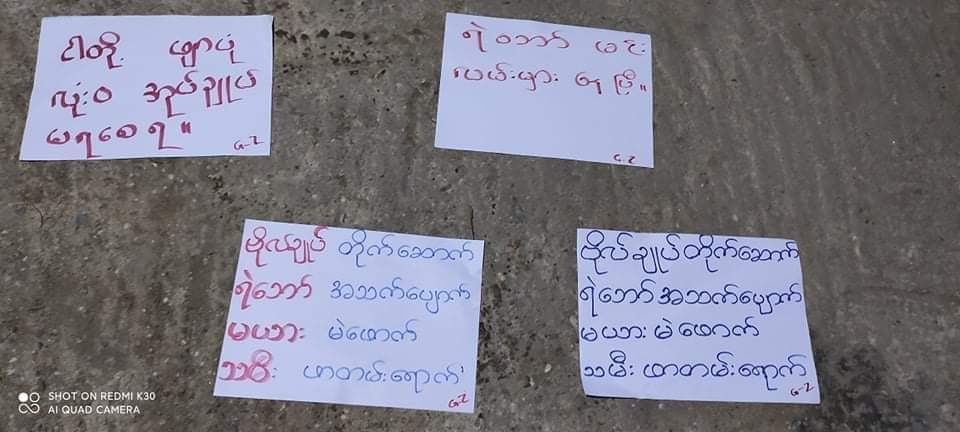 ငါတို့ ဖျာပုံ
လုံးဝ အုပ်ချုပ်
မရစေရ။
G-Z
ရဲဘော် မင်း
လမ်းမှား နေပြီ။
G-Z
ဗိုလ်ချုပ် တိုက်ဆောက်
ရဲဘော် အသက်ပျောက်
မယား မဲဖောက်
သမီး ဟာတမ်းရောက်
G-Z
ဗိုလ်ချုပ်တိုက်ဆောက်
ရဲဘော်အသက်ပျောက်
မယားမဲဖောက်
သမီးဟာတမ်းရောက်
G-Z
SHOT ON REDMI K30
AI QUAD CAMERA